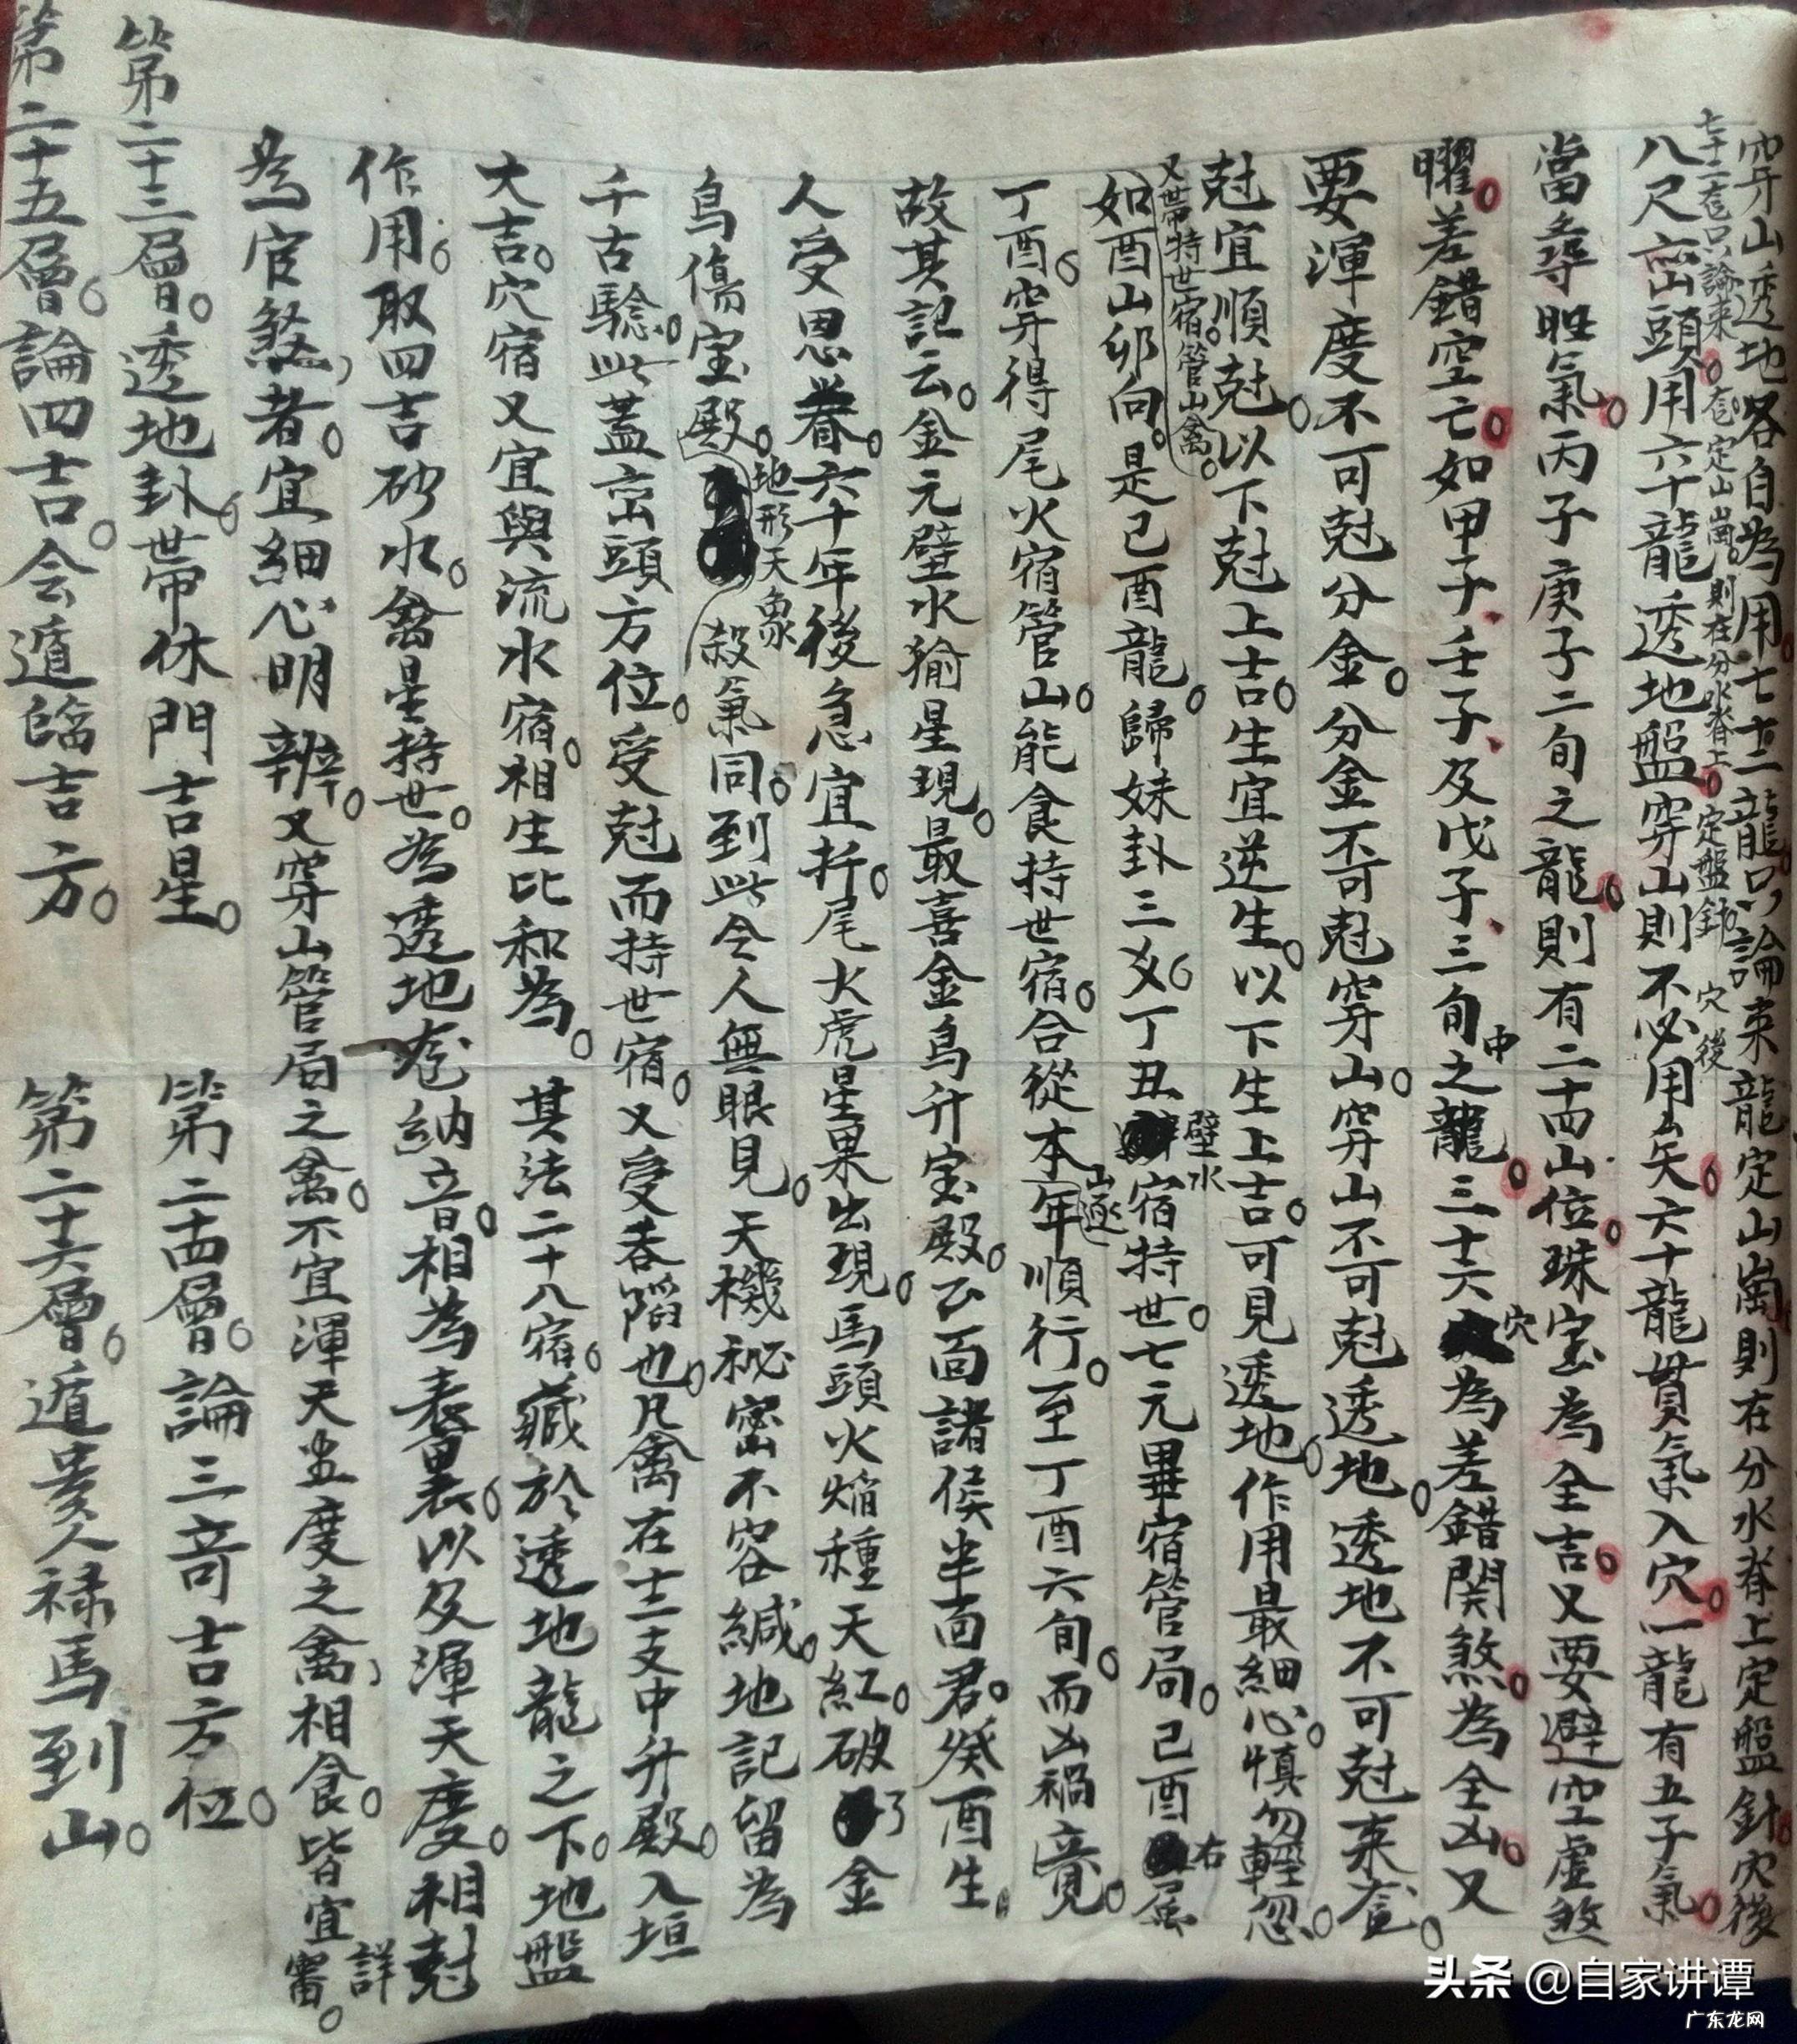 穿山透地各自為用七十二龍只論來龍定山崗則在分水脊上定盤針穴後
七十二龍只論來龍定山崗則在分水脊上定盤針穴後
八尺巒頭用六十龍透地盤穿山則不必用矣六十龍貫氣入穴一龍有五子氣
當尋旺氣丙子庚子二旬之龍則有二十四山位珠宝為全吉又要避空虛煞
曜差錯空亡如甲子壬子及戊子三旬中之龍三十六穴為差錯関煞為全凶又
要渾度不可尅分金分金不可尅穿山穿山不可尅透地透地不可尅來龍
尅宜順尅以下尅上吉生宜逆生以下生上吉可見透地作用最細心慎勿輕忽
又世帶持世宿管山禽
如酉山卯向是己酉龍歸妹卦三爻丁丑壁水宿持世七元畢宿管局己酉右屬
丁酉穿得尾火宿管山能食持世宿合從本年山逐順行至丁酉六旬而凶禍竟
故其記云金元壁水㺄星現最喜金烏升宝殿公面諸侯半面君癸酉生
人受恩眷六十年後急宜折尾火虎星果出現馬頭火焔種天紅破了金
烏傷宝殿地形天象殺氣同到此令人無眼見天機秘密不容緘地記留為
千古騐此蓋巒頭方位受尅而持世宿又受吞陷也凡禽在十二支中升殿入垣
大吉穴宿又宜與流水宿相生比和為其法二十八宿藏於透地龍之下地盤
作用取四吉砂水禽星持世為透地龍納音相為表裏以及渾天度相尅
為官煞者宜細心明辨又穿山管局之禽不宜渾天盈度之禽相食皆宜詳審
第二十三層透地卦世帶休門吉星
第二十四層論三奇吉方位
第二十五層論四吉会遁臨吉方
第二十六層遁貴人禄馬到山
头条 @自家讲谭
广东龙网